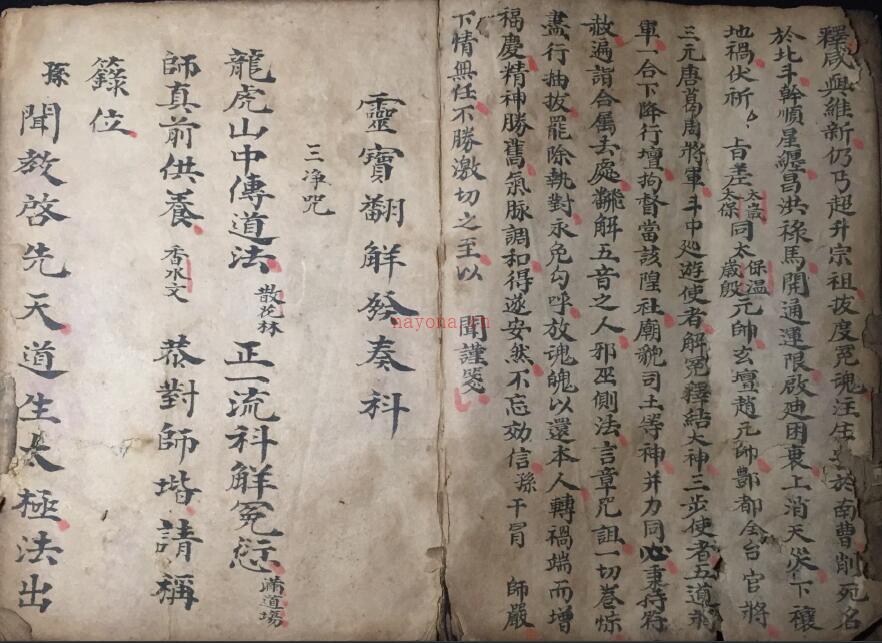 釋咸與維新仍乃超升宗祖拔度冤魂注生 於南曹削死名
於北斗幹順星纏昌洪祿馬開通運限啟迪困衰上消天災下禳
地禍伏祈 旨差太歲太保同太歲殷保温元帥玄壇趙元帥酆都合台官將
三元唐葛周將軍斗中廵遊使者解冤釋結大神三步使者五道
軍一台下降行壇拘督當該隍社廟貌司土等神并力同心秉持符
赦遍詣合屬去處翻解五音之人邪巫側法言章咒詛一切卷宗
盡行抽拔罷除執對永免勾呼放魂魄以還本人轉禍端而增
福慶精神勝舊氣脉調和得遂安然不忘効信孫干冒 師嚴
下情無任不勝激切之至以 聞謹箋
靈寶翻解發奏科
三净咒
龍虎山中傳道法 散花林 正一流科解冤愆 滿道場
師真前供養 香水文 恭對師堦請稱
籙位
孫聞教啓先天道生太極法出
nayona.cn